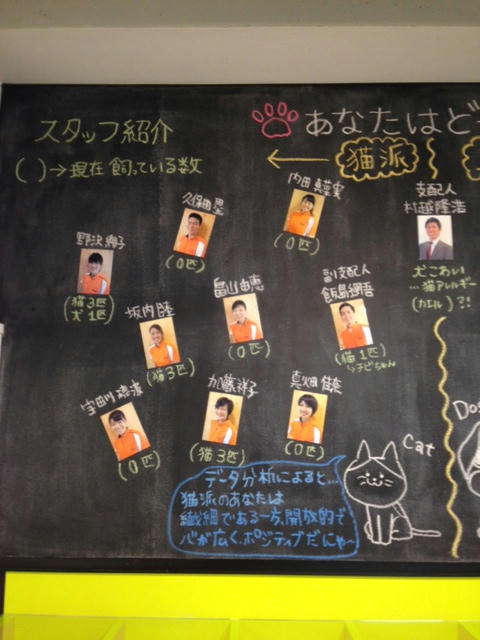 スタッフ紹介
( )→現在 飼っている数
あなたはど
猫派
内田 真菜実
(0匹)
久保田 思
(0匹)
野沢 絢子
(猫3匹
犬1匹)
支配人
村越隆浩
犬こわい
…猫アレルギー
(カエル)?!
畠山由恵
(0匹)
副支配人
飯島綱吾
(猫1匹)
↳チビちゃん
坂内 陸
(猫3匹)
宇田川
(0匹)
加藤祥子
(猫3匹)
真畑 佳菜
(0匹)
Cat
Do
データ分析によると…
猫派のあなたは
繊細である一方、開放的で
心が広く、ポジティブだにゃ〜